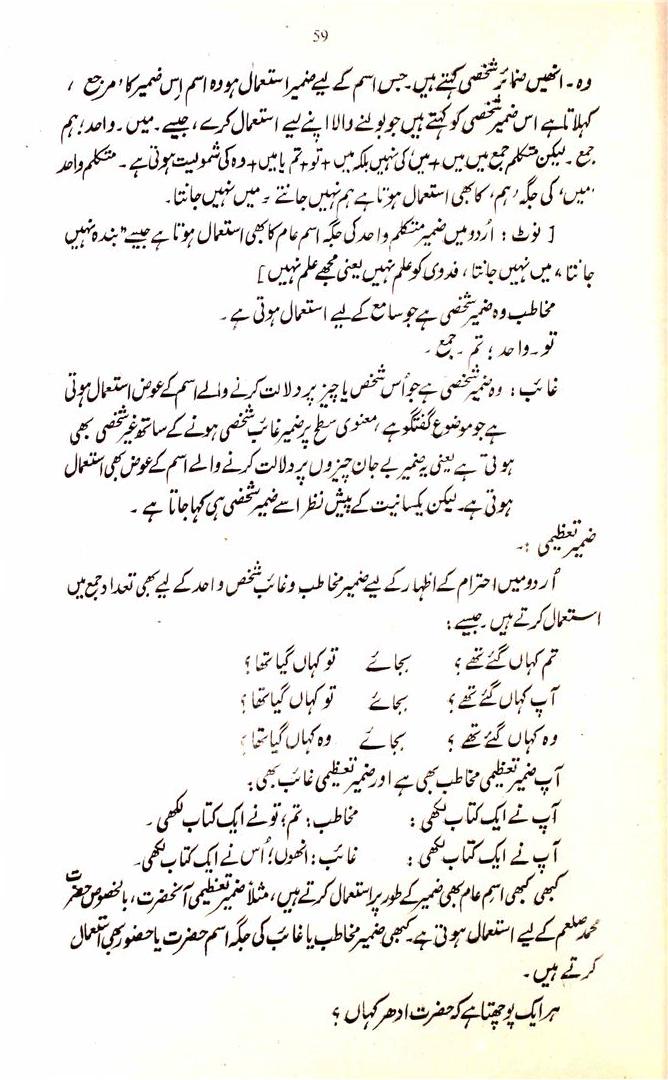 59
وہ ۔ انھیں ضمائر شخصی کہتے ہیں۔ جس اسم کے لیے ضمیر استعمال ہو وہ اسم اِس ضمیر کا ’مرجع‘
کہلاتا ہے اس ضمیر شخصی کو کہتے ہیں جو بولنے والا اپنے لیے استعمال کرے، جیسے ۔ میں ۔ واحد؛ ہم
جمع ۔ لیکن متکلم جمع میں میں + میں، کی نہیں بلکہ میں + تو + تم یا میں + وہ کی شمولیت ہوتی ہے ۔ متکلم واحد
’میں‘ کی جگہ ’ہم‘ کا بھی استعمال ہوتا ہے ہم نہیں جانتے ۔ میں نہیں جانتا۔
[ نوٹ : اُردو میں ضمیر متکلم واحد کی جگہ اسم عام کا بھی استعمال ہوتا ہے جیسے ”بندہ نہیں
جانتا، میں نہیں جانتا، فدوی کو علم نہیں یعنی مجھے علم نہیں ]
مخاطب وہ ضمیر شخصی ہے جو سامع کے لیے استعمال ہوتی ہے ۔
تو ۔ واحد ؛ تم ۔ جمع ۔
غائب : وہ ضمیر شخصی ہے جو اُس شخص یا چیز پر دلالت کرنے والے اسم کے عوض استعمال ہوتی
ہے جو موضوع گفتگو ہے، معنوی سطح پر ضمیر غائب شخصی ہونے کے ساتھ غیر شخصی بھی
ہوتی ہے یعنی یہ ضمیر بے جان چیزوں پر دلالت کرنے والے اسم کے عوض بھی استعمال
ہوتی ہے۔ لیکن یکسانیت کے پیش نظر اسے ضمیر شخصی ہی کہا جاتا ہے ۔
ضمیر تعظیمی :۔
اُردو میں احترام کے اظہار کے لیے ضمیر مخاطب و غائب شخص واحد کے لیے بھی تعداد جمع میں
استعمال کرتے ہیں ۔ جیسے :
تم کہاں گئے تھے ؟ بجائے تو کہاں گیا تھا ؟
آپ کہاں گئے تھے ؟ بجائے تو کہاں گیا تھا ؟
وہ کہاں گئے تھے ؟ بجائے وہ کہاں گیا تھا ؟
آپ ضمیر تعظیمی مخاطب بھی ہے اور ضمیر تعظیمی غائب بھی :
آپ نے ایک کتاب لکھی : مخاطب : تم؛ تو نے ایک کتاب لکھی ۔
آپ نے ایک کتاب لکھی : غائب : انھوں؛ اُس نے ایک کتاب لکھی۔
کبھی کبھی اسم عام بھی ضمیر کے طور پر استعمال کرتے ہیں، مثلاً ضمیر تعظیمی آنحضرت، بالخصوص حضرت
محمد صلعم کے لیے استعمال ہوتی ہے۔ کبھی ضمیر مخاطب یا غائب کی جگہ اسم حضرت یا حضور بھی استعمال
کرتے ہیں ۔
ہر ایک پوچھتا ہے کہ حضرت ادھر کہاں ؟